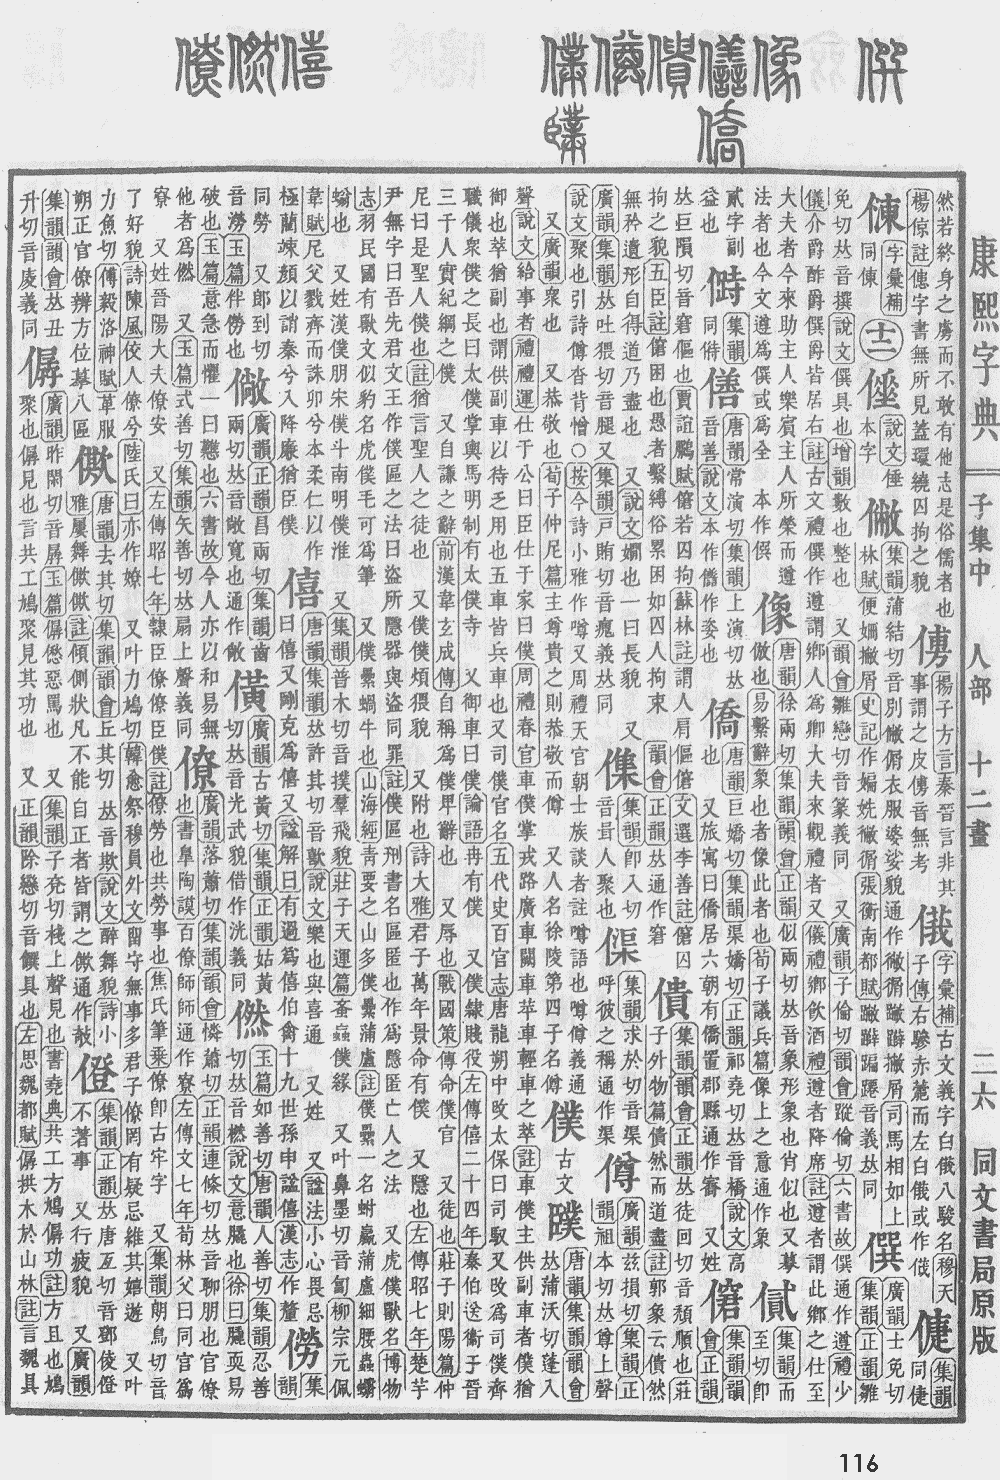 康熙字典 子集中 人部 十二畫 二六 同文書局原版
然若終身之虜而不敢有他志是俗儒者也
楊倞註傯字書無所見蓋環繞囚拘之貌
揚子方言秦晉言非其
事謂之皮傅音無考
字彙補古文義字
集韻同
字彙補同
十二
說文
本字
集韻蒲結切音別
廣韻士免切
集韻正韻雛
免切𠀤音撰說文僎具也增韻數也整也 又韻會雛戀切音篆義同 又廣韻子倫切韻會蹤倫切六書故僎通作遵禮少
儀介爵酢爵僎爵皆居右註古文禮僎作遵謂鄉人爲卿大夫來觀禮者又儀禮鄉飲酒禮遵者降席註遵者謂此鄉之仕至
大夫者今來助主人樂賓主人所榮而遵
法者也今文遵爲僎或爲全 本作僎
像
唐韻徐兩切集韻韻會正韻似兩切𠀤音象形象也肖似也又摹
倣也易繫辭象也者像此者也荀子議兵篇像上之意通作象
集韻而
至切卽
貳字副
益也
集韻
同偫
僐
唐韻常演切集韻上演切𠀤
音善說文本作僐作姿也
僑
唐韻巨嬌切集韻渠嬌切正韻祁堯切𠀤音橋說文高
也 又旅寓曰僑居六朝有僑置郡縣通作喬 又姓
僒
集韻正韻
𠀤巨隕切音窘傴也賈誼鵩賦僒若囚拘蘇林註謂人肩傴僒文選李善註僒囚
拘之貌五臣註僒困也愚者繫縛俗累困如囚人拘束 韻會正韻𠀤通作窘
僓
集韻韻會正韻𠀤徒回切音頹順也莊
子外物篇僓然而道盡註郭象云僓然
無矜遺形自得道乃盡也 又說文嫺也一曰長貌 又
廣韻集韻𠀤吐猥切音腿又集韻戸賄切音瘣義𠀤同
集韻卽入切
音昌人聚也
集韻求於切音渠
呼彼之稱通作渠
僔
廣韻兹損切集韻正
韻祖本切𠀤尊上聲
說文聚也引詩僔沓背憎○按今詩小雅作噂又周禮天官朝士族談者註噂語也噂僔義通
又廣韻衆也 又恭敬也荀子仲尼篇主尊貴之則恭敬而僔 又人名徐陵第四子名僔
僕
古文
唐韻集韻韻會
𠀤蒲沃切蓬入
聲說文給事者禮禮運仕于公曰臣仕于家曰僕周禮春官車僕掌戎路廣車闕車苹車輕車之萃註車僕主供副車者僕猶
御也萃猶副也謂供副車以待乏用也五車皆兵車也又太僕司僕官名五代史百官志唐龍朔中改太保曰司馭又改爲司僕齊
職儀衆僕之長曰太僕掌輿馬明制有太僕寺 又御車曰僕論語冉有僕 又僕隸賤役左傳僖二十四年秦伯送衞于晉
三千人實紀綱之僕 又自謙之辭前漢韋玄成傳自稱爲僕甲辭也 又辱也戰國策傳命僕官 又徒也莊子則陽篇仲
尼曰是聖人僕也註猶言聖人之徒也 又僕僕煩猥貌 又附也詩大雅君子萬年景命有僕 又隱也左傳昭七年楚芋
尹無宇曰吾先君文王作僕區之法曰盜所隱器與盜同罪註僕區刑書名區匿也作爲隱匿亡人之法 又虎僕獸名博物
志羽民國有獸文似豹名虎僕毛可爲筆 又僕纍蝸牛也山海經靑要之山多僕纍蒲盧註僕纍一名蚹蠃蒲盧細腰蟲螔
蝓也 又姓漢僕朋宋僕斗南明僕淮 又集韻普木切音撲羣飛貌莊子天運篇蚉蝱僕緣 又叶鼻墨切音匐柳宗元佩
韋賦尼父戮齊而誅卯兮本柔仁以作
極藺竦顔以誚秦兮入降廉猶臣僕
僖
唐韻集韻𠀤許其切音歖說文樂也與喜通 又姓 又諡法小心畏忌
曰僖又剛克爲僖又諡解曰有過爲僖伯禽十九世孫申諡僖漢志作釐
僗
韻 集
同勞 又郞到切
音澇玉篇伴僗也
僘
廣韻正韻昌兩切集韻齒
兩切𠀤音敞寬也通作敞
僙
廣韻古黃切集韻正韻姑黃
切𠀤音光武貌借作洸義同
僽
玉篇如善切唐韻人善切集韻忍善
切𠀤音橪說文意膬也徐曰膬耎易
破也玉篇意急而懼一曰戁也六書故今人亦以和易無
他者爲僽 又玉篇式善切集韻矢善切𠀤扇上聲義同
僚
廣韻落蕭切集韻韻會憐蕭切正韻連條切𠀤音聊朋也官僚
也書皐陶謨百僚師師通作寮左傳文七年荀林父曰同官爲
寮 又姓晉陽大夫僚安 又左傳昭七年隸臣僚僚臣僕註僚勞也共勞事也焦氏筆乗僚卽古牢字 又集韻朗鳥切音
了好貌詩陳風佼人僚兮陸氏曰亦作嫽 又叶力鳩切韓愈祭穆員外文留守無事多君子僚罔有疑忌維其嬉遊 又叶
力魚切傅毅洛神賦革服
朔正官僚辨方位摹八區
僛
唐韻去其切集韻韻會丘其切𠀤音欺說文醉舞貌詩小
雅屢舞僛僛註傾側狀凡不能自正者皆謂之僛通作攲
僜
集韻正韻𠀤唐亙切音鄧倰僜
不著事 又行疲貌 又廣韻
集韻韻會𠀤丑
升切音㥄義同
僝
廣韻昨閑切音孱玉篇僝僽惡罵也 又集韻子兗切棧上聲見也書堯典共工方鳩僝功註方且也鳩
聚也僝見也言共工鳩聚見其功也 又正韻除戀切音饌具也左思魏都賦僝拱木於山林註言魏具
116